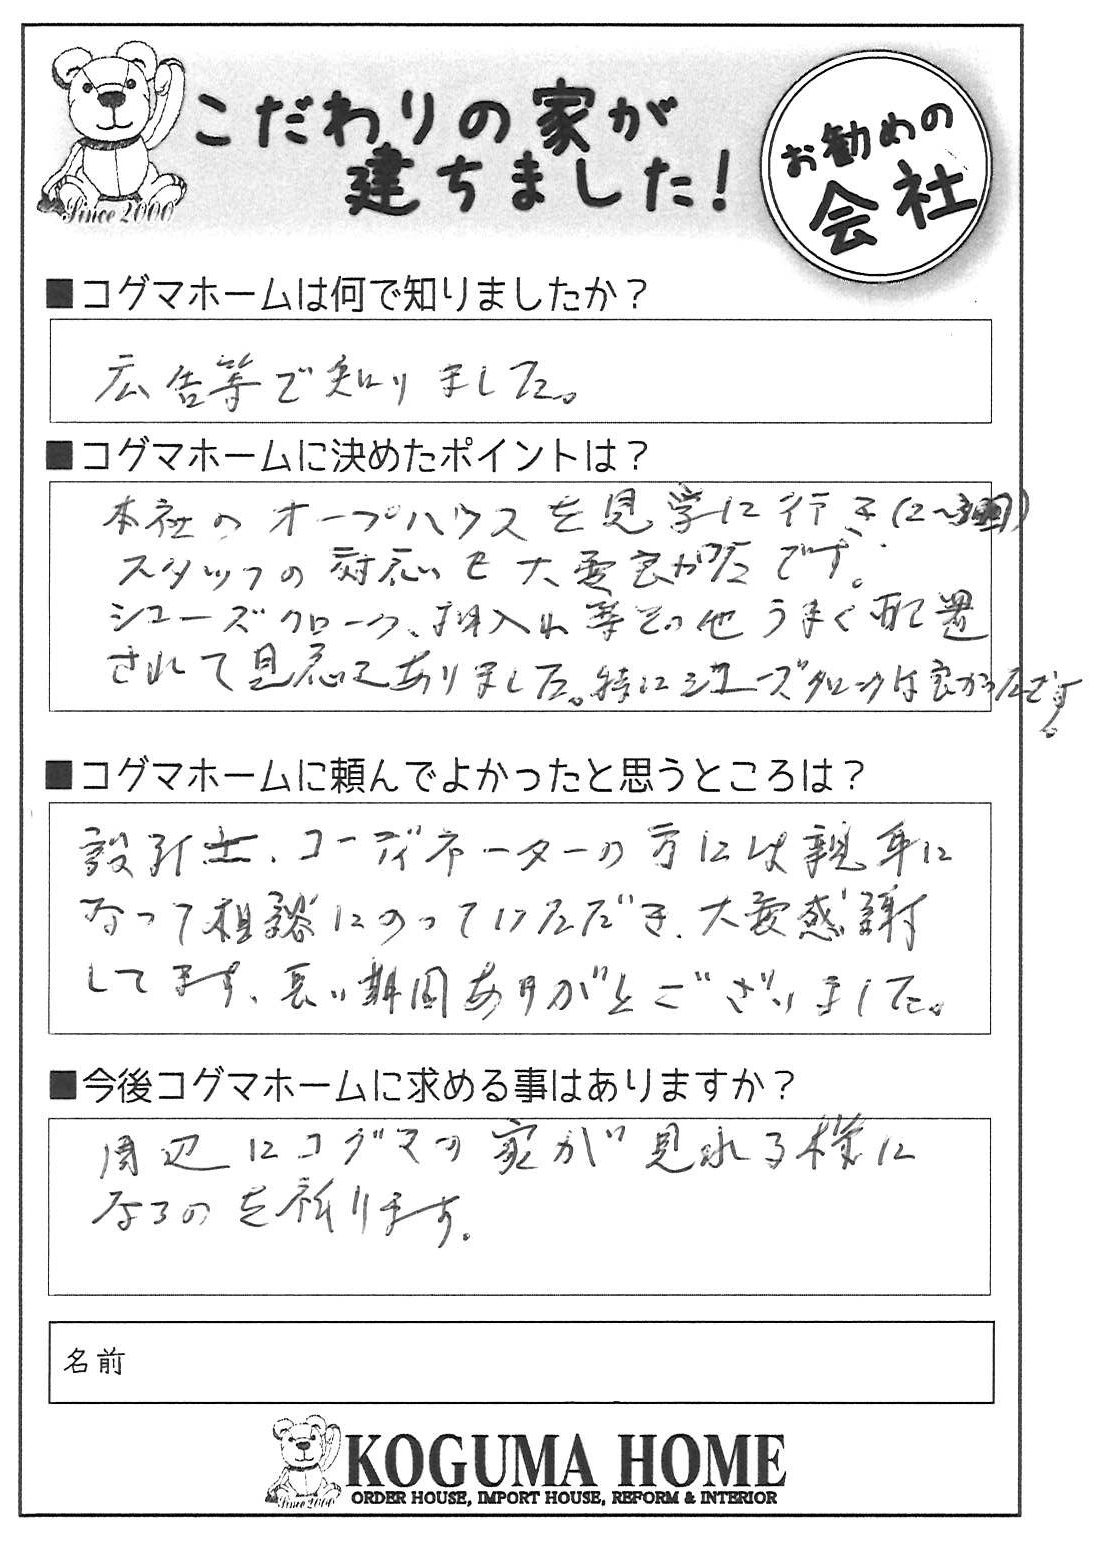 こだわりの家が
建ちました!
お勧めの
会社
Since 2000
■コグマホームは何で知りましたか?
広告等で知りました。
■コグマホームに決めたポイントは?
本社のオープハウスを見学に行き(2~3回)
スタッフの対応も大変良かったです。
シューズクローク、押入れ等その他うまく配置
されて見応えありました。特にシューズクロークは良かったです。
■コグマホームに頼んでよかったと思うところは?
設計士、コーディネーターの方には親身に
なって相談にのっていただき、大変感謝
してます、長い期間ありがとございました。
■今後コグマホームに求める事はありますか?
周辺にコグマの家が見れる様に
なるのを祈ります。
名前
Since 2000
KOGUMA HOME
ORDER HOUSE, IMPORT HOUSE, REFORM & INTERIOR